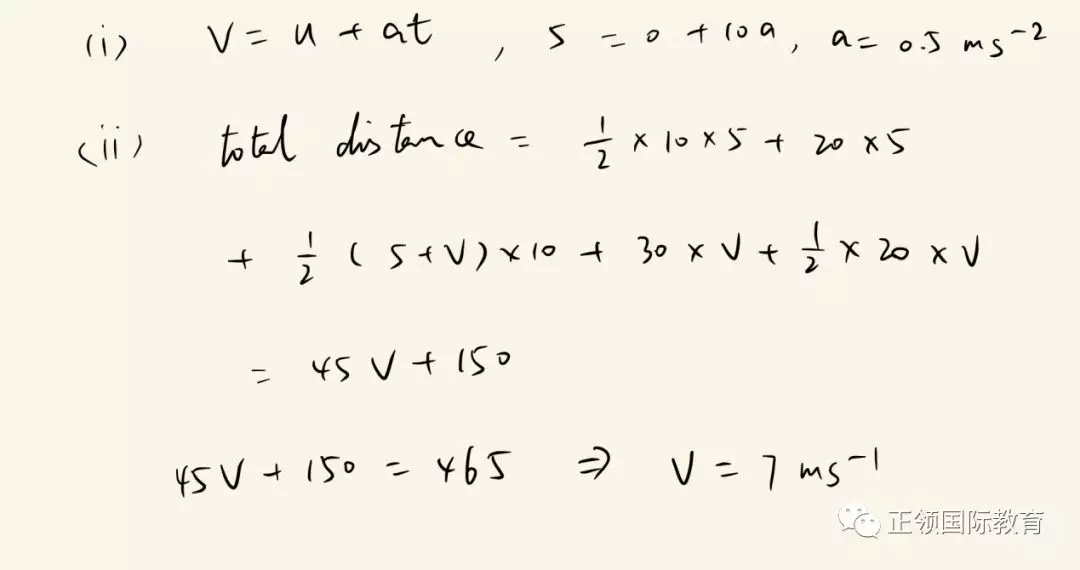 (i) V = u + at , 5 = 0 + 10a, a = 0.5 ms⁻²
(ii) total distance = 1/2 × 10 × 5 + 20 × 5
+ 1/2 (5 + V) × 10 + 30 × V + 1/2 × 20 × V
= 45 V + 150
45 V + 150 = 465 ⇒ V = 7 ms⁻¹
正领国际教育